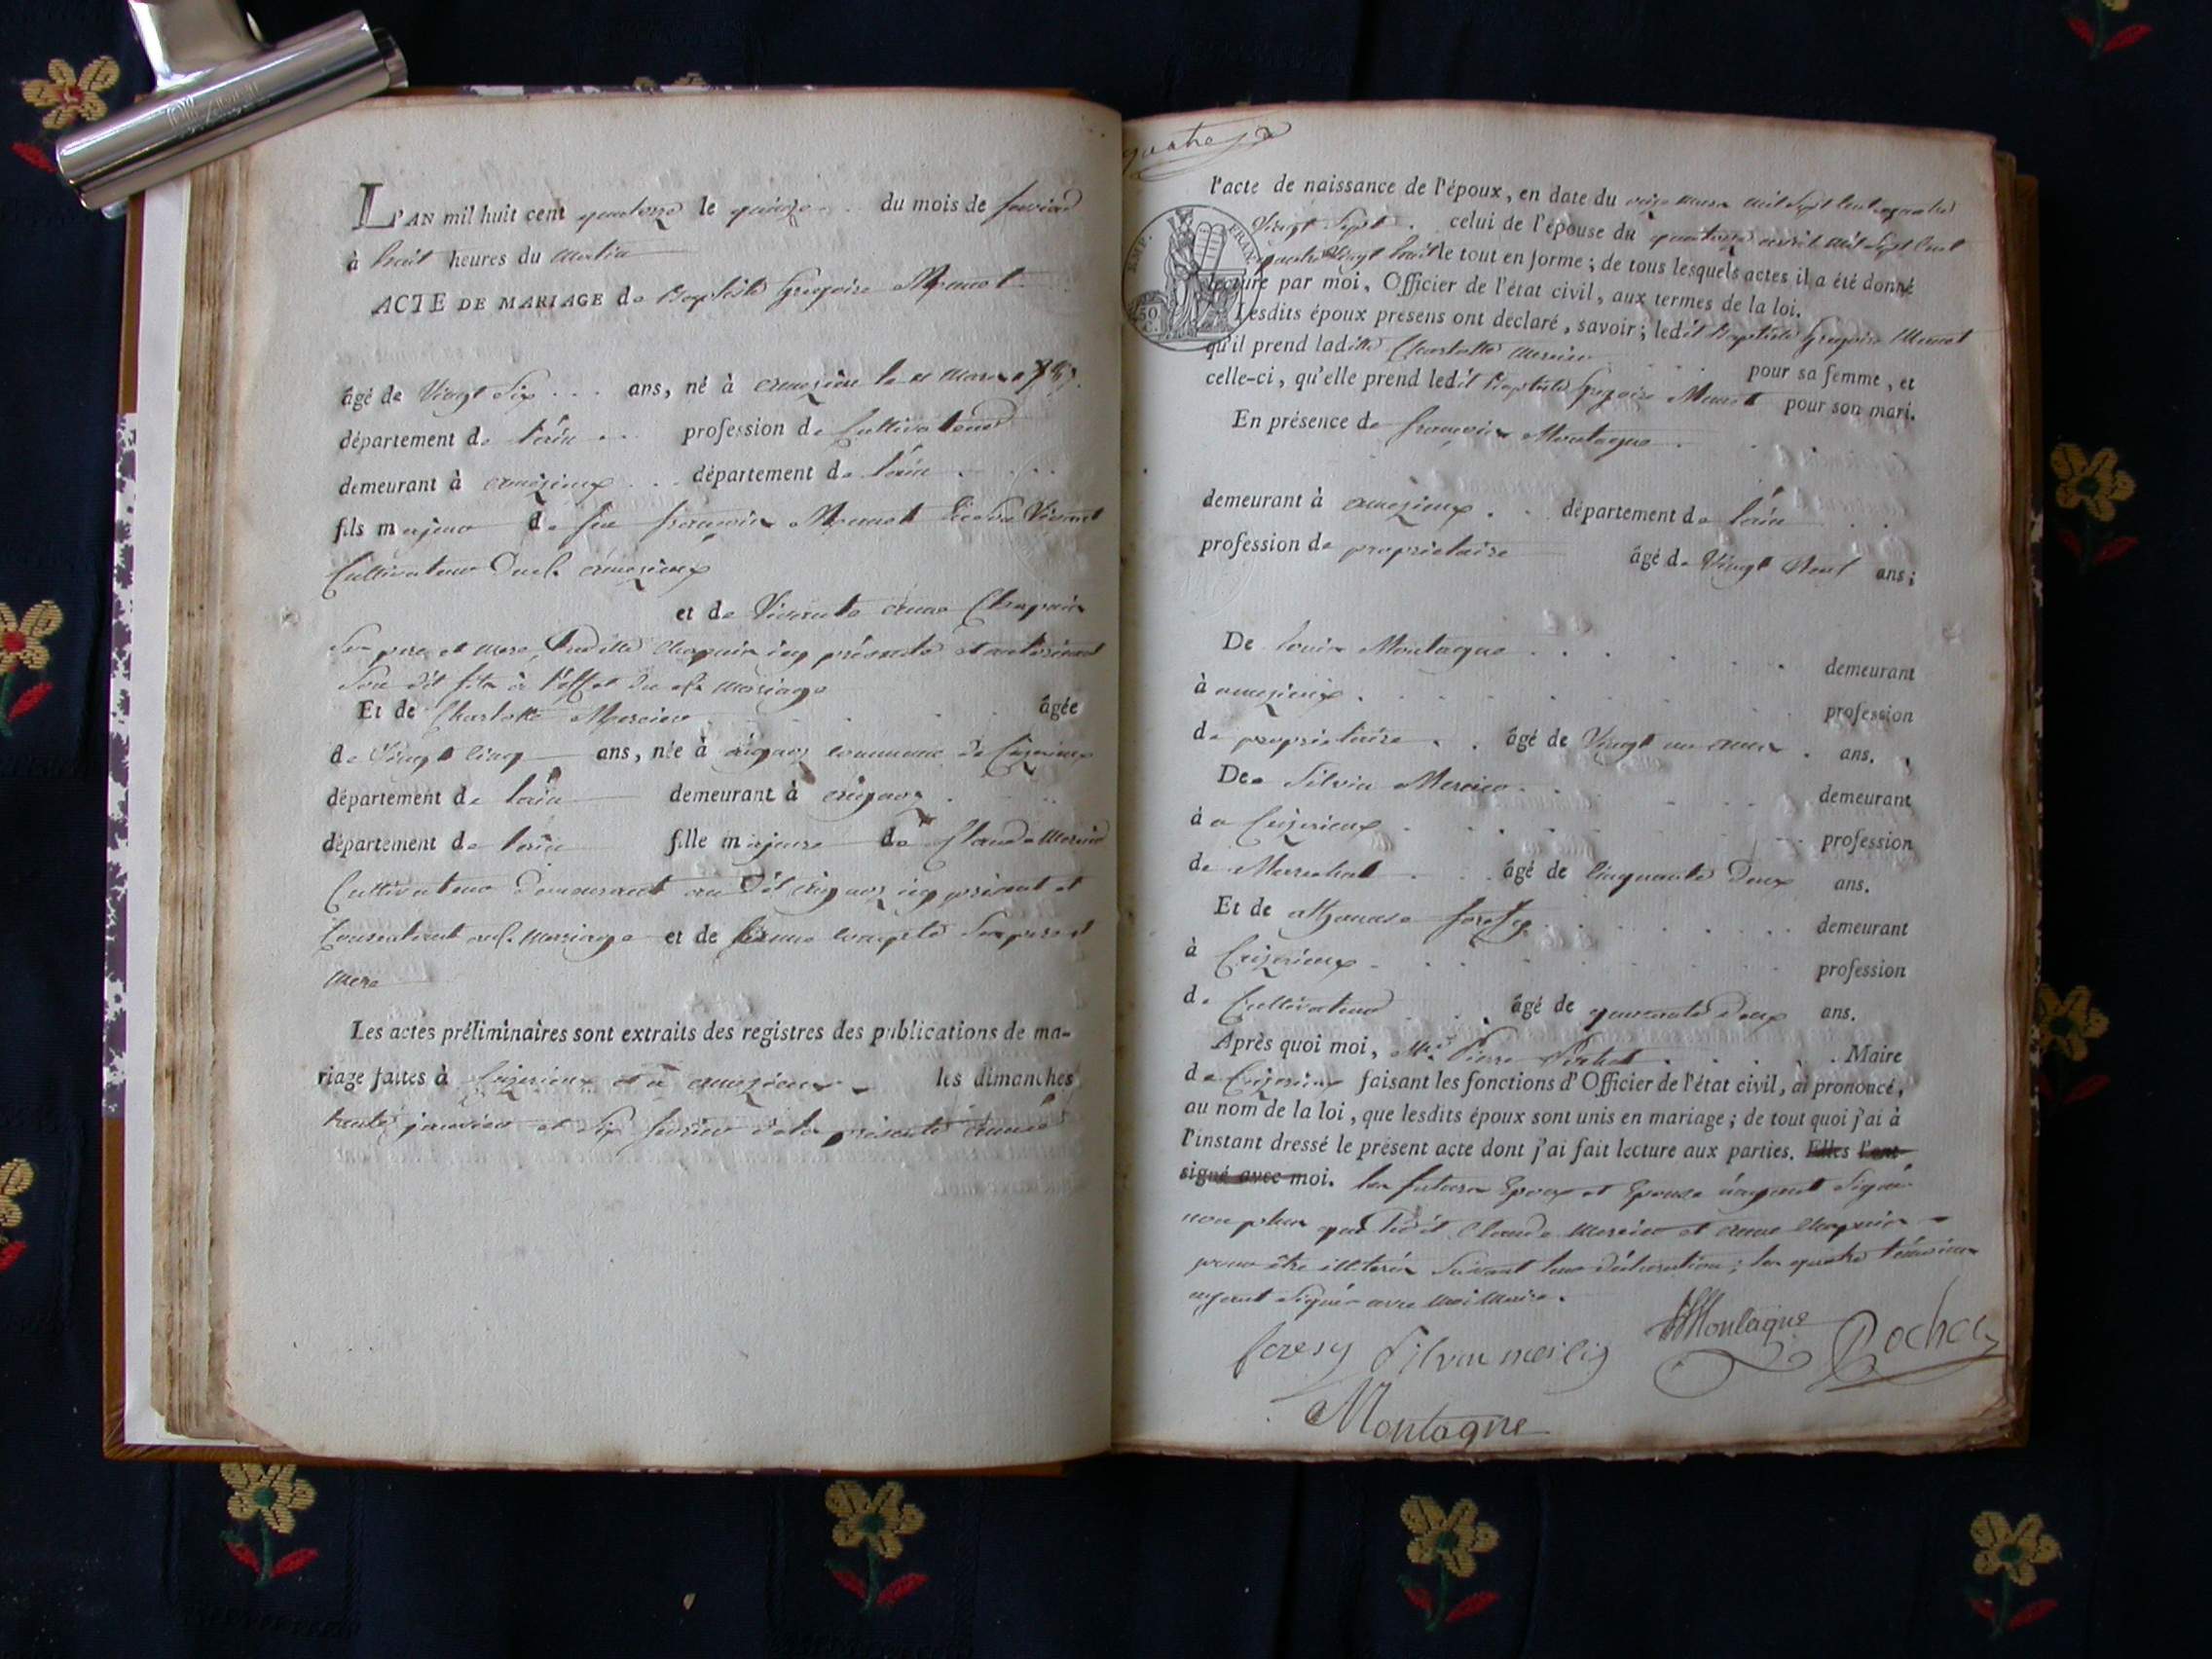 L'AN mil huit cent quatorze le quinze du mois de fevrier
à huit heures du matin
ACTE DE MARIAGE de Baptiste Gregoire Monnet
âgé de Vingt Six ans, né à le mars
département de l'ain profession de Cultivateur
demeurant à amezieux département de l'ain
fils majeur de feu françois Vivant
Cultivateur amezieux
et de Vivante anne Chapuis
Ses pere et mere, Ladite Chapuis icy présente et autorisant
Son dit fils à l'effet du mariage
Et de Charlotte Mercier âgée
de Vingt Cinq ans, née à commune de Ceyzerieux
département de l'ain demeurant à
département de l'ain fille majeure de Claude Mercier
Cultivateur demeurant au dit icy présent et
Consentant mariage et de Ses pere et
mere
Les actes préliminaires sont extraits des registres des publications de ma-
riage faites à Ceyzerieux et à amezieux les dimanches
trente janvier et Six fevrier de la présente année
quatre
l'acte de naissance de l'époux, en date du onze mars mil Sept Cent quatre
Vingt Sept celui de l'épouse du quatorze mil Sept Cent
quatre Vingt huit le tout en forme ; de tous lesquels actes il a été donné
lecture par moi, Officier de l'état civil, aux termes de la loi.
EMP. FRAN
50 C.
Lesdits époux présens ont declaré, savoir ; ledit Baptiste Gregoire Monnet
qu'il prend ladite Charlotte Mercier pour sa femme, et
celle-ci, qu'elle prend ledit Baptiste Gregoire Monnet pour son mari.
En présence de françois Montagne
demeurant à amezieux département de l'ain
profession de proprietaire âgé de Vingt Neuf ans ;
De Louis Montagne demeurant
à amezieux profession
de proprietaire âgé de Vingt un ans ans.
De Silvin Mercier demeurant
à a Ceyzerieux profession
de Marechal âgé de Cinquante Deux ans.
Et de athanase foresy demeurant
à Ceyzerieux profession
de Cultivateur âgé de quarante Deux ans.
Après quoi moi, Mr. Pierre Rochet Maire
de Ceyzerieux faisant les fonctions d'Officier de l'état civil, ai prononcé,
au nom de la loi, que lesdits époux sont unis en mariage ; de tout quoi j'ai à
l'instant dressé le présent acte dont j'ai fait lecture aux parties. Elles l'ont
signé avec moi. les futurs Epoux et Epouse n'ayant Signé
non plus que Ledit Claude Mercier et anne Chapuis
pour être illiterés Suivant leur déclaration ; les quatre témoins
ayant Signé avec moi Maire.
foresy Silvin Montagne Rochet
Montagne